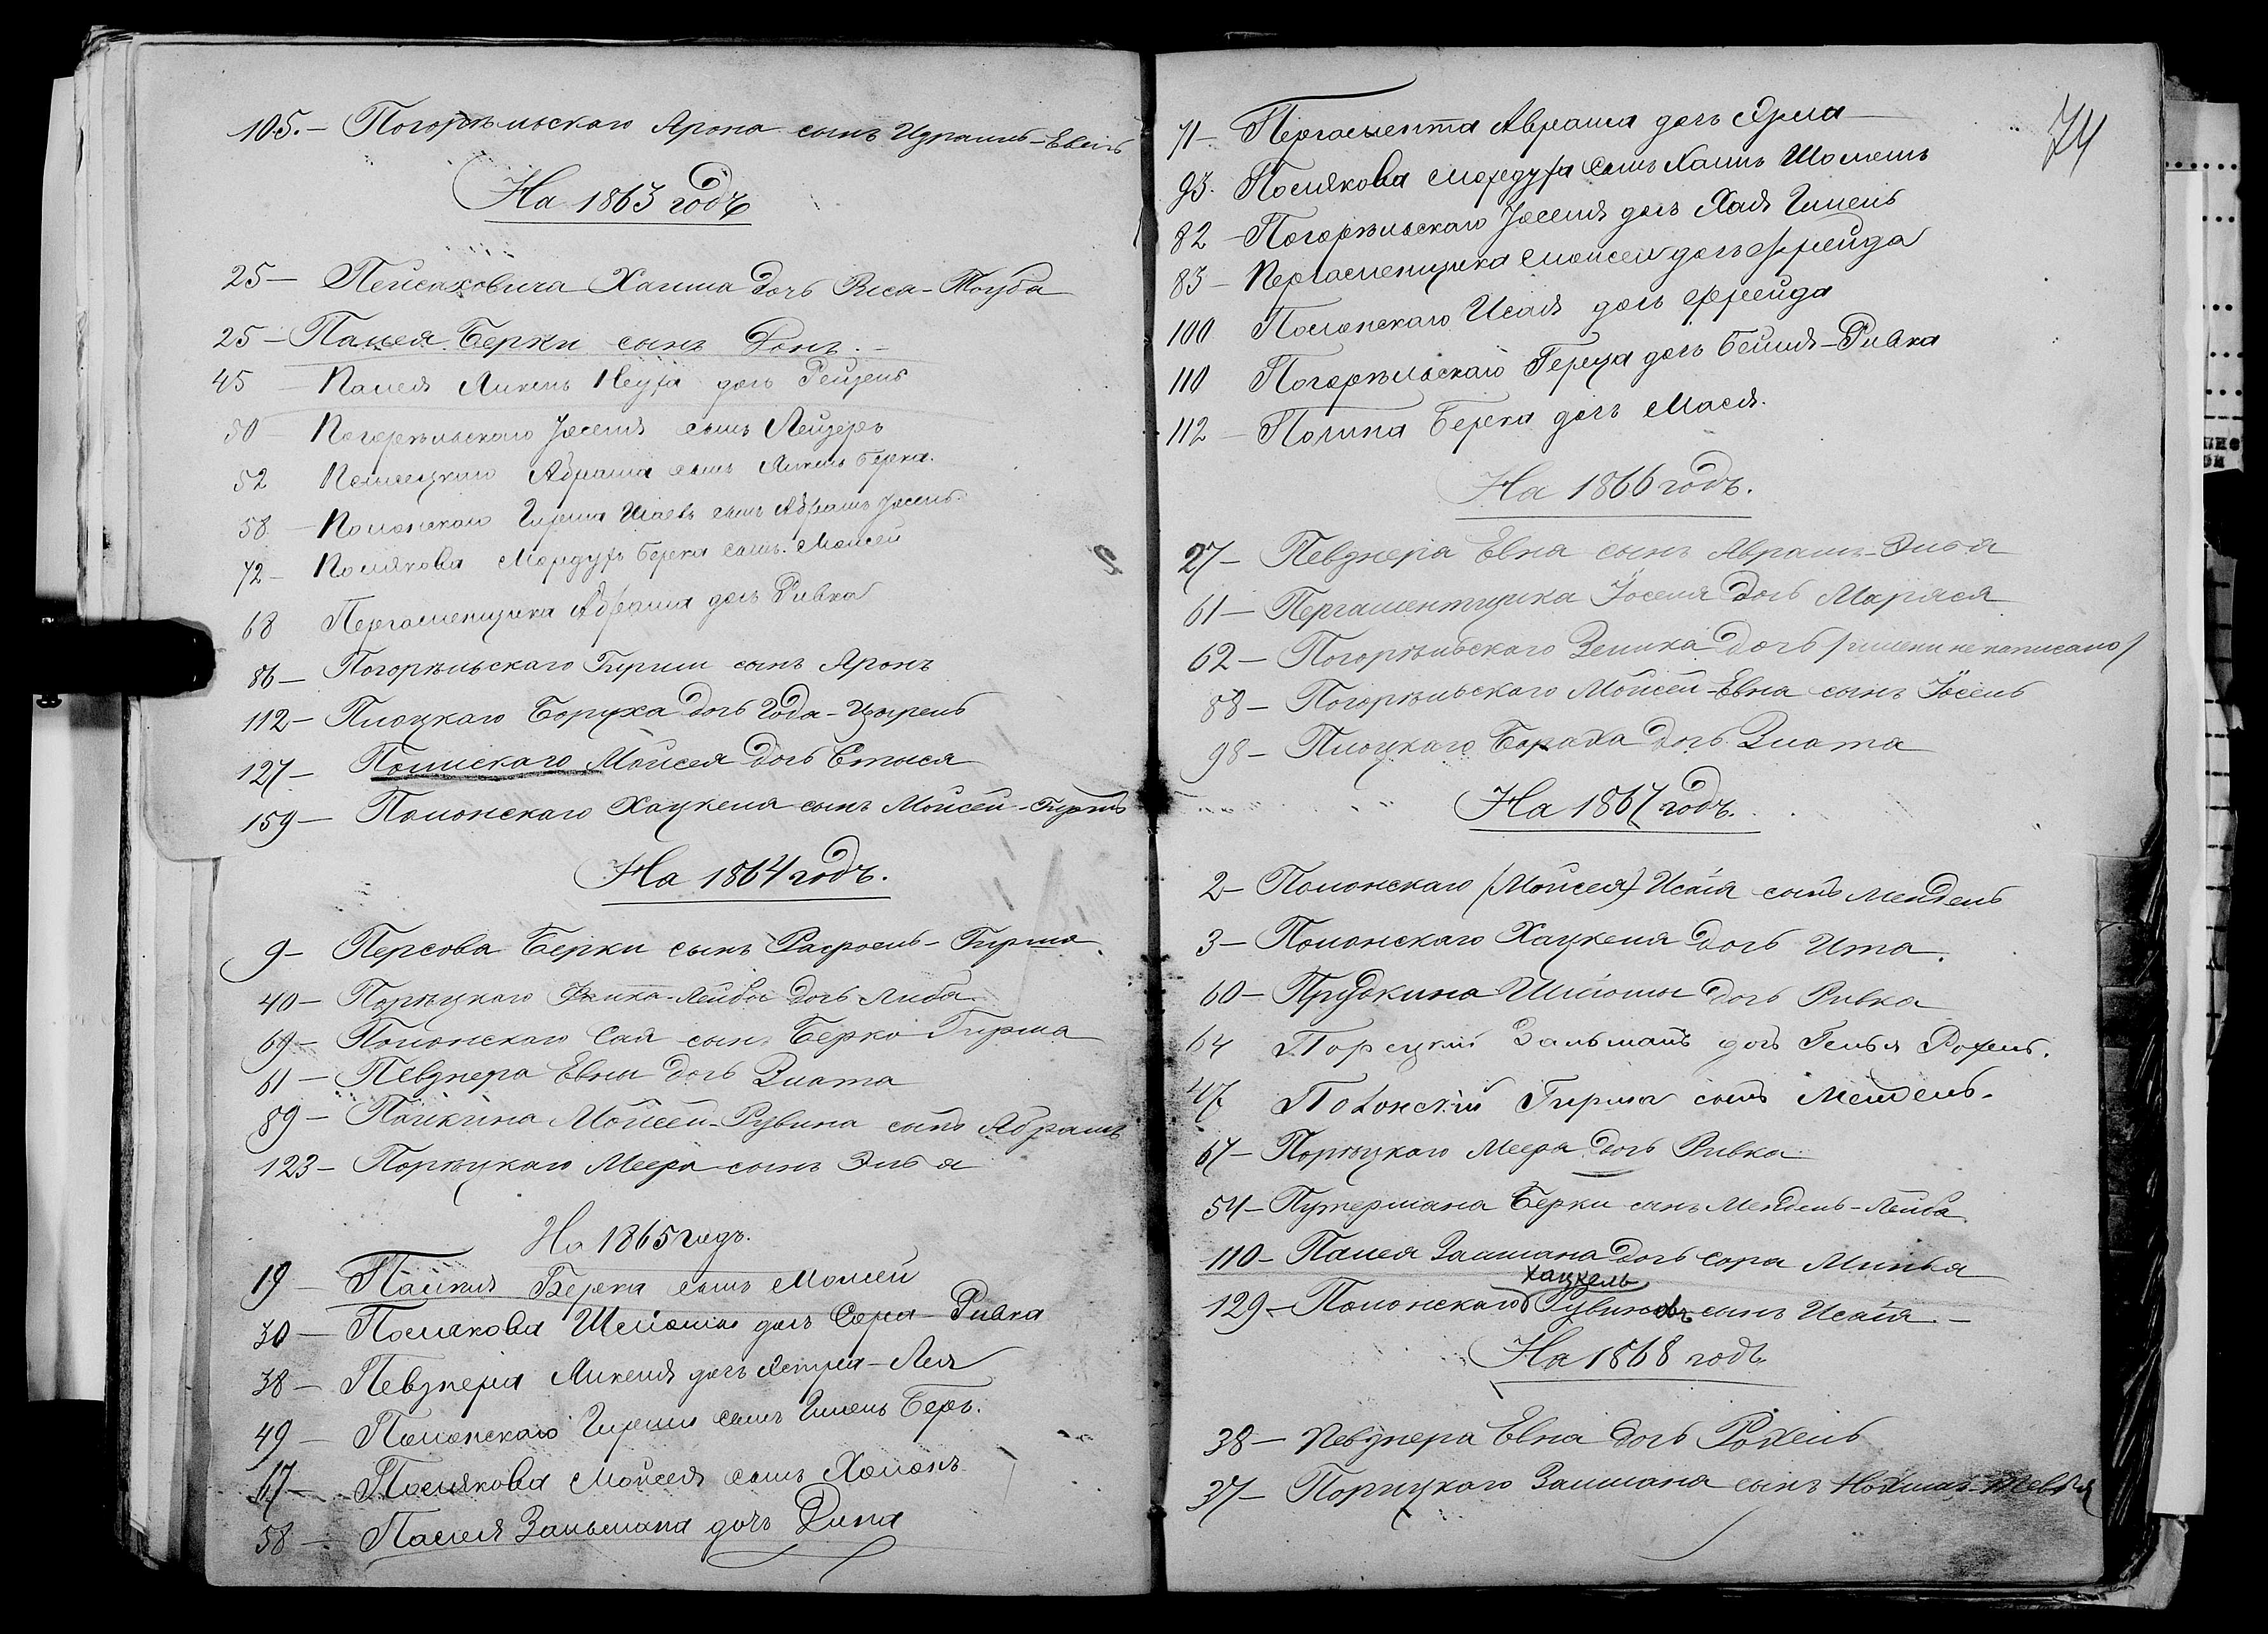 105.– Погорѣльскаго Арона сынъ Израиль-Евель
На 1863 годъ
25 – Пейсаховича Хаима дочь Риса-Тоуба
25 – Палея Берки сынъ Донъ. –
45 Палея Ликель Неуха дочь Рейцель
50 – Погорѣльскаго Іоселя сынъ Лейзеръ
52 Абрама сынъ Ликель Берка.
58 – Полонскаго Гирша Исаевъ сынъ Абрамъ Іосель.
72 – Полякова Мордухъ Берка сынъ Моисей
68 Пергаменщика Абрама дочь Ривка
86 – Погорѣльскаго Гирши сынъ Аронъ
112 – Плоцкаго Боруха дочь Года-Цырель
127 – Полискаго Мойсея дочь Стыся
159 – Полонскаго Хацкеля сынъ Мойсей-Гиршъ
На 1864 годъ.
9 – Персова Берки сынъ Рафоель-Гирша.
40 – Порѣцкаго Лейбы дочь Либа.
69 – Полонскаго Сая сынъ Берко Гирша
61 – Певзнера Евны дочь Злата
89 – Пайкина Мойсей-Рувина сынъ Абрамъ
123 – Порѣцкаго Меера сынъ Элья
На 1865 годъ.
19 – Пайкия Берка сынъ Моисей
30 – Полякова Шлиомы дочь Сора-Ривка
38 – Певзнера Ликеля дочь Лея
49 – Полонскаго Гирши сынъ Гилель Беръ.
47 – Полякова Мойсея сынъ Холонъ
58 – Палея Зальмана дочь Дина
74
71 – Пергамента Абрама дочь
93. Полякова Мордуха сынъ Хаимъ Шоломъ
82 – Погорѣльскаго Іоселя дочь Хая Гинель
83 – Пергаменщика Моисея дочь Фрейда
100 Полонскаго Исая дочь Фрейда
110 Погорѣльскаго Герца дочь Бейля-Ривка
112 – Полина Берка дочь Мася.
На 1866 годъ.
27 – Певзнера Евна сынъ Абрамъ-Элья
61 – Пергаментщика Іоселя дочь Маряся
62 – Погорѣльскаго Зелика дочь /имени не написано/
88 – Погорѣльскаго Мойсей-Евна сынъ Іосель
98 – Плоцкаго Бораха дочь Злата
На 1867 годъ.
2 – Полонскаго (Мойсея) Исаія сынъ Мендель
3 – Полонскаго Хацкеля дочь Ита.
60 – Прудкина Шліомы дочь Ривка
64 Порецкій Зальманъ дочь Гелья Рохель.
47 Полонскій Гирша сынъ Мендель.
67 – Порѣцкаго Меера дочь Ривка
54 – Путермана Берки сынъ Мендель-Лейба
110 – Палея Залмана дочь Сора Минья
Хацкель
129 – Полонскаго Рувиновъ сынъ Исаія. –
На 1868 годъ.
38 – Певзнера Евна дочь Рохель
37 – Порицкаго Залмана сынъ Нохимъ-Тевья